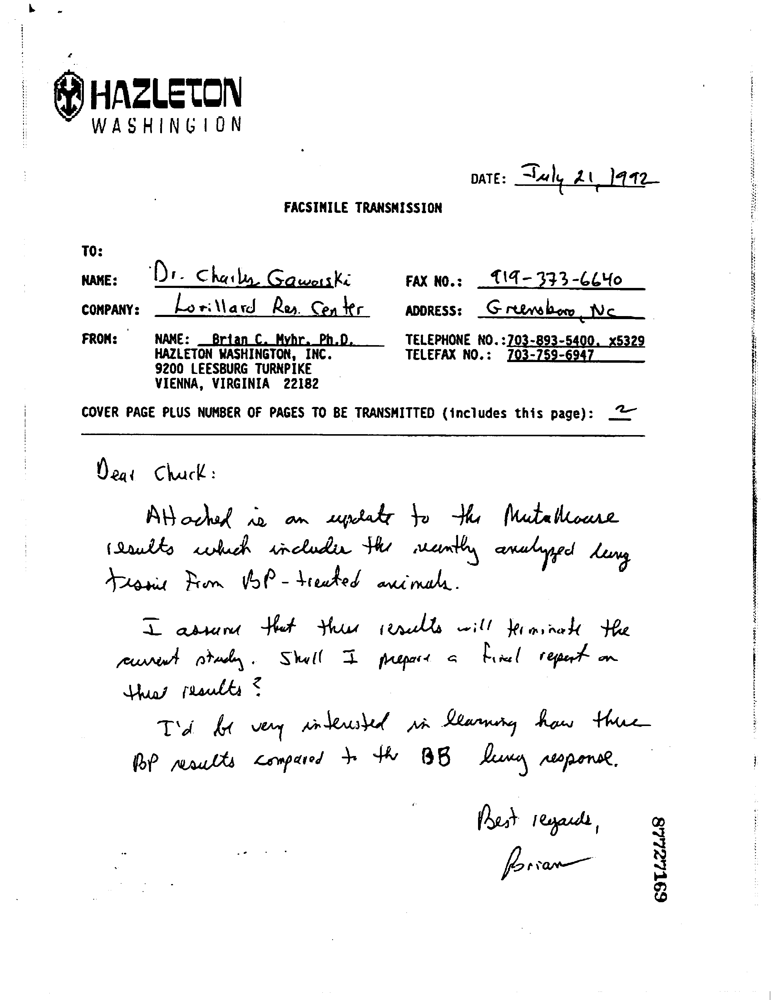 HAZLETON
WASHINGTON
DATE: July 21, 1992
FACSIMILE TRANSMISSION
TO:
NAME: Dr. Charles Gaworski FAX NO.: 919-373-6640
COMPANY: Lorillard Res. Center ADDRESS: Greensboro, NC
FROM: NAME: Brian C. Myhr, Ph.D. TELEPHONE NO.:703-893-5400, x5329
HAZLETON WASHINGTON, INC. TELEFAX NO.: 703-759-6947
9200 LEESBURG TURNPIKE
VIENNA, VIRGINIA 22182
COVER PAGE PLUS NUMBER OF PAGES TO BE TRANSMITTED (includes this page): 2
Dear Chuck:
Attached is an update to the MutaMouse
results which includes the recently analyzed lung
tissue from BP-treated animals.
I assume that these results will terminate the
current study. Shall I prepare a final report on
these results?
I'd be very interested in learning how these
BP results compared to the BB lung response.
Best regards,
Brian
87727169